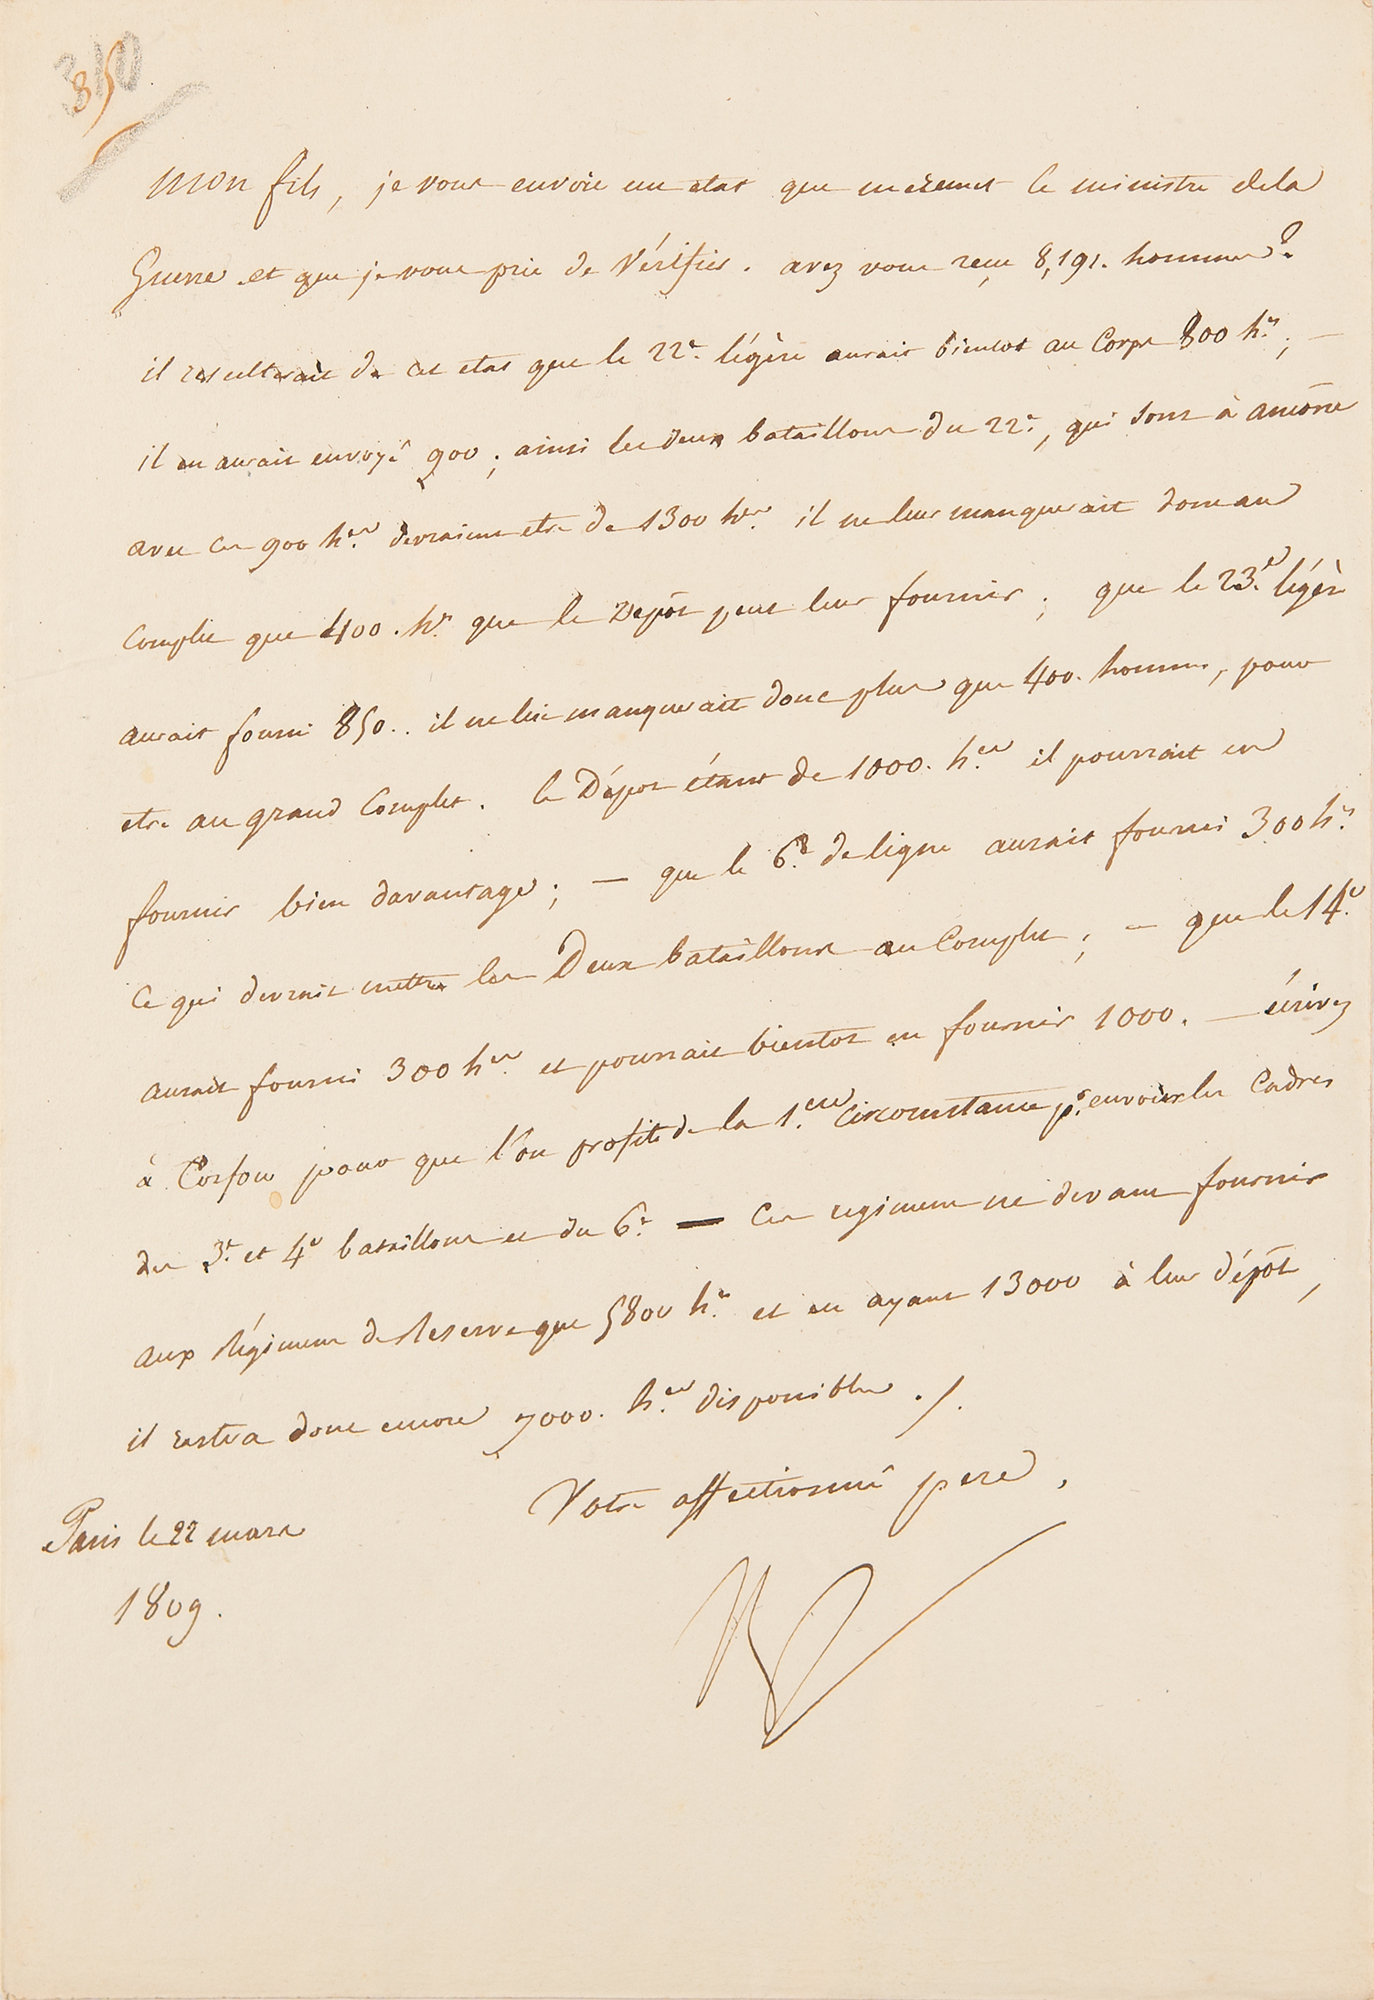 310
85
mon fils, je vous envoie un etat que me remet le ministre de la
Guerre et que je vous prie de Vérifier. avez vous reçu 8,191. hommes?
il resulterait de cet etat que le 22e. légère aurait bientot au Corps 800 hes; —
il en aurait envoyé 900; ainsi les deux bataillons du 22e, qui sont à ancône
avec ces 900 hes. devraient etre de 1300 hes. il ne leur manquerait donc au
complet que 400. hes. que le Dépôt peut leur fournir; que le 23.e légère
aurait fourni 850.. il ne lui manquerait donc plus que 400. hommes, pour
etre au grand complet. le Dépot étant de 1000. hes. il pourrait en
fournir bien davantage; — que le 6e. de ligne aurait fourni 300 hes.
ce qui devrait mettre les Deux bataillons au Complet; — que le 14e.
aurait fourni 300 hes. et pourrait bientot en fournir 1000. — écrivez
à Corfou pour que l'on profite de la 1.ere circonstance pr. envoier les Cadres
des 3e. et 4e bataillons et du 6e. — Ces regimens ne devant fournir
aux Régimens de Reserve que 5800 hes. et en ayant 13000 à leur dépôt,
il restera donc encore 7000. hes. disponibles ./.
Votre affectionné pere,
Paris le 22 mars
1809.